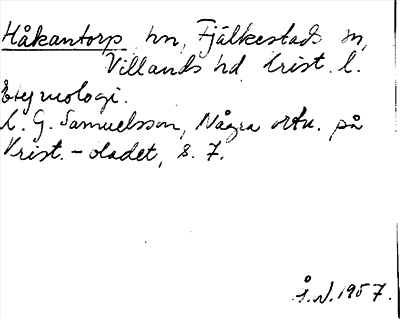 Håkantorp hn, Fjälkestads sn,
Villands hd Krist. l.
Etymologi.
C. G. Samuelsson, Några ortn. på
Krist. - bladet, s. 7.
Å.N. 1957.